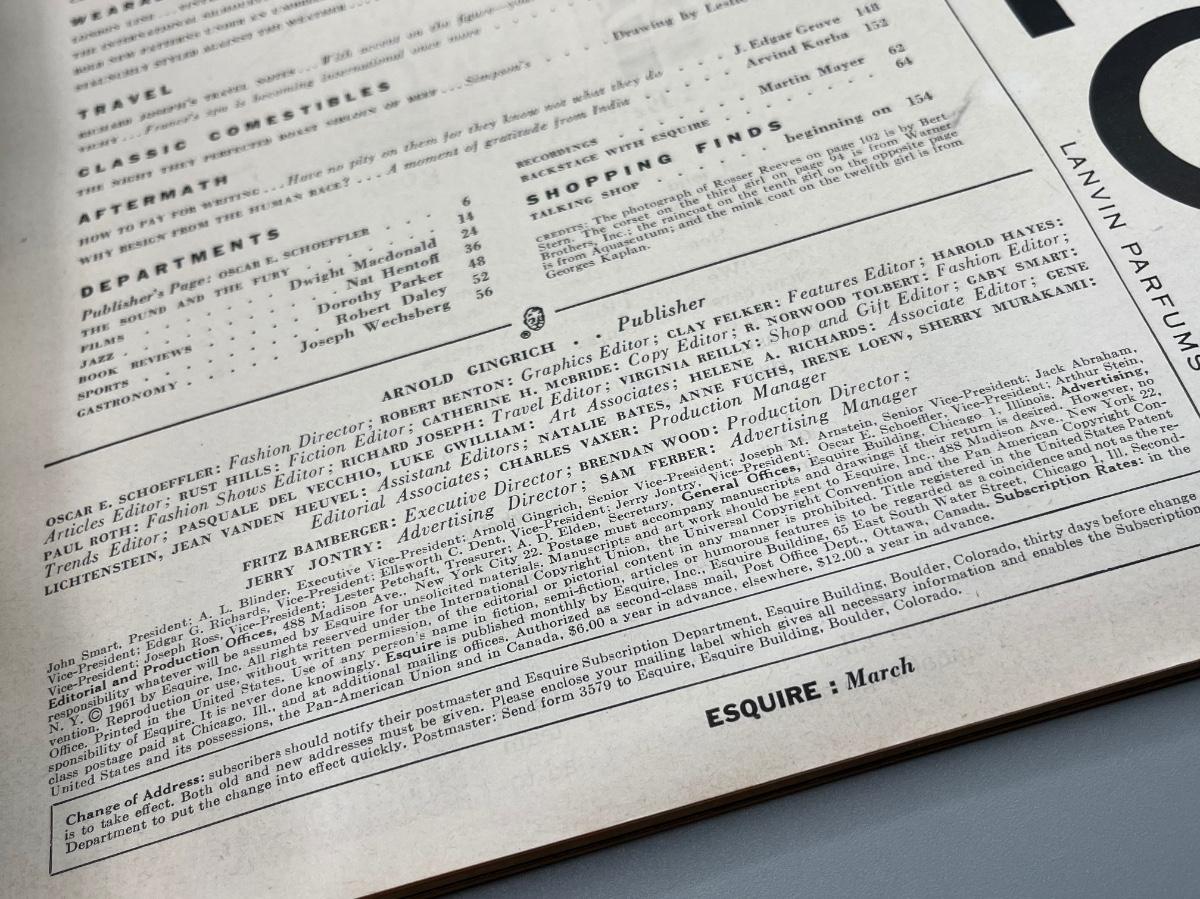 WEARA
TRAVEL
RICHARD JOSEPH'S TRAVEL NOTES . . . With accent on the figure—
VICHY . . . France's spa is becoming international once more
CLASSIC COMESTIBLES
THE NIGHT THEY PERFECTED ROAST SIRLOIN OF BEEF . . . Simpson's . . . . Drawing by Leslie
AFTERMATH
HOW TO PAY FOR WRITING . . . Have no pity on them for they know not what they do . . . . J. Edgar Grove 148
WHY RESIGN FROM THE HUMAN RACE? . . . A moment of gratitude from India . . . . Arvind Korba 152
DEPARTMENTS
Publisher's Page: OSCAR E. SCHOEFFLER . . . . 6
THE SOUND AND THE FURY . . . . 14
FILMS . . . . Dwight Macdonald 24
JAZZ . . . . Nat Hentoff 36
BOOK REVIEWS . . . . Dorothy Parker 48
SPORTS . . . . Robert Daley 52
GASTRONOMY . . . . Joseph Wechsberg 56
RECORDINGS . . . . Martin Mayer 62
BACKSTAGE WITH ESQUIRE . . . . 64
SHOPPING FINDS
TALKING SHOP . . . . beginning on 154
CREDITS: The photograph of Rosser Reeves on page 102 is by Bert
Stern. The corset on the third girl on page 94 is from Warner
Brothers, Inc.; the raincoat on the tenth girl on the opposite page
is from Aquascutum; and the mink coat on the twelfth girl is from
Georges Kaplan.
ARNOLD GINGRICH . . Publisher
OSCAR E. SCHOEFFLER: Fashion Director; ROBERT BENTON: Graphics Editor; CLAY FELKER: Features Editor; HAROLD HAYES:
Articles Editor; RUST HILLS: Fiction Editor; CATHERINE H. McBRIDE: Copy Editor; R. NORWOOD TOLBERT: Fashion Editor;
PAUL ROTH: Fashion Shows Editor; RICHARD JOSEPH: Travel Editor; VIRGINIA REILLY: Shop and Gift Editor; GARY SMART:
Trends Editor; PASQUALE DEL VECCHIO, LUKE GWILLIAM: Art Associates; HELENE A. RICHARDS: Associate Editor; GENE
LICHTENSTEIN, JEAN VANDEN HEUVEL: Assistant Editors; NATALIE BATES, ANNE FUCHS, IRENE LOEW, SHERRY MURAKAMI:
Editorial Associates; CHARLES VAXER: Production Manager
FRITZ BAMBERGER: Executive Director; BRENDAN WOOD: Production Director;
JERRY JONTRY: Advertising Director; SAM FERBER: Advertising Manager
John Smart, President; A. L. Blinder, Executive Vice-President; Arnold Gingrich, Senior Vice-President; Joseph M. Arnstein, Senior Vice-President; Jack Abraham,
Vice-President; Edgar G. Richards, Vice-President; Ellsworth C. Dent, Vice-President; Jerry Jontry, Vice-President; Oscar E. Schoeffler, Vice-President; Arthur Stein,
Vice-President; Joseph Ross, Vice-President; Lester Petchaft, Treasurer; A. D. Elden, Secretary. General Offices, Esquire Building, Chicago 1, Illinois. Advertising,
Editorial and Production Offices, 488 Madison Ave., New York City, 22. Postage must accompany manuscripts and drawings if their return is desired. However, no
responsibility whatever will be assumed by Esquire for unsolicited materials. Manuscripts and art work should be sent to Esquire, Inc., 488 Madison Ave., New York 22,
N. Y. © 1961 by Esquire, Inc. All rights reserved under the International Copyright Union, the Universal Copyright Convention and the Pan American Copyright Con-
vention. Reproduction or use, without written permission, of the editorial or pictorial content in any manner is prohibited. Title registered in the United States Patent
Office. Printed in the United States. Use of any person's name in fiction, semi-fiction, articles or humorous features is to be regarded as a coincidence and not as the re-
sponsibility of Esquire. It is never done knowingly. Esquire is published monthly by Esquire, Inc., Esquire Building, 65 East South Water Street, Chicago 1, Ill. Second-
class postage paid at Chicago, Ill., and at additional mailing offices. Authorized as second-class mail, Post Office Dept., Ottawa, Canada. Subscription Rates: in the
United States and its possessions, the Pan-American Union and in Canada, $6.00 a year in advance, elsewhere, $12.00 a year in advance.
Change of Address: subscribers should notify their postmaster and Esquire Subscription Department, Esquire Building, Boulder, Colorado, thirty days before change
is to take effect. Both old and new addresses must be given. Please enclose your mailing label which gives all necessary information and enables the Subscription
Department to put the change into effect quickly. Postmaster: Send form 3579 to Esquire, Esquire Building, Boulder, Colorado.
ESQUIRE : March
LANVIN PARFUMS